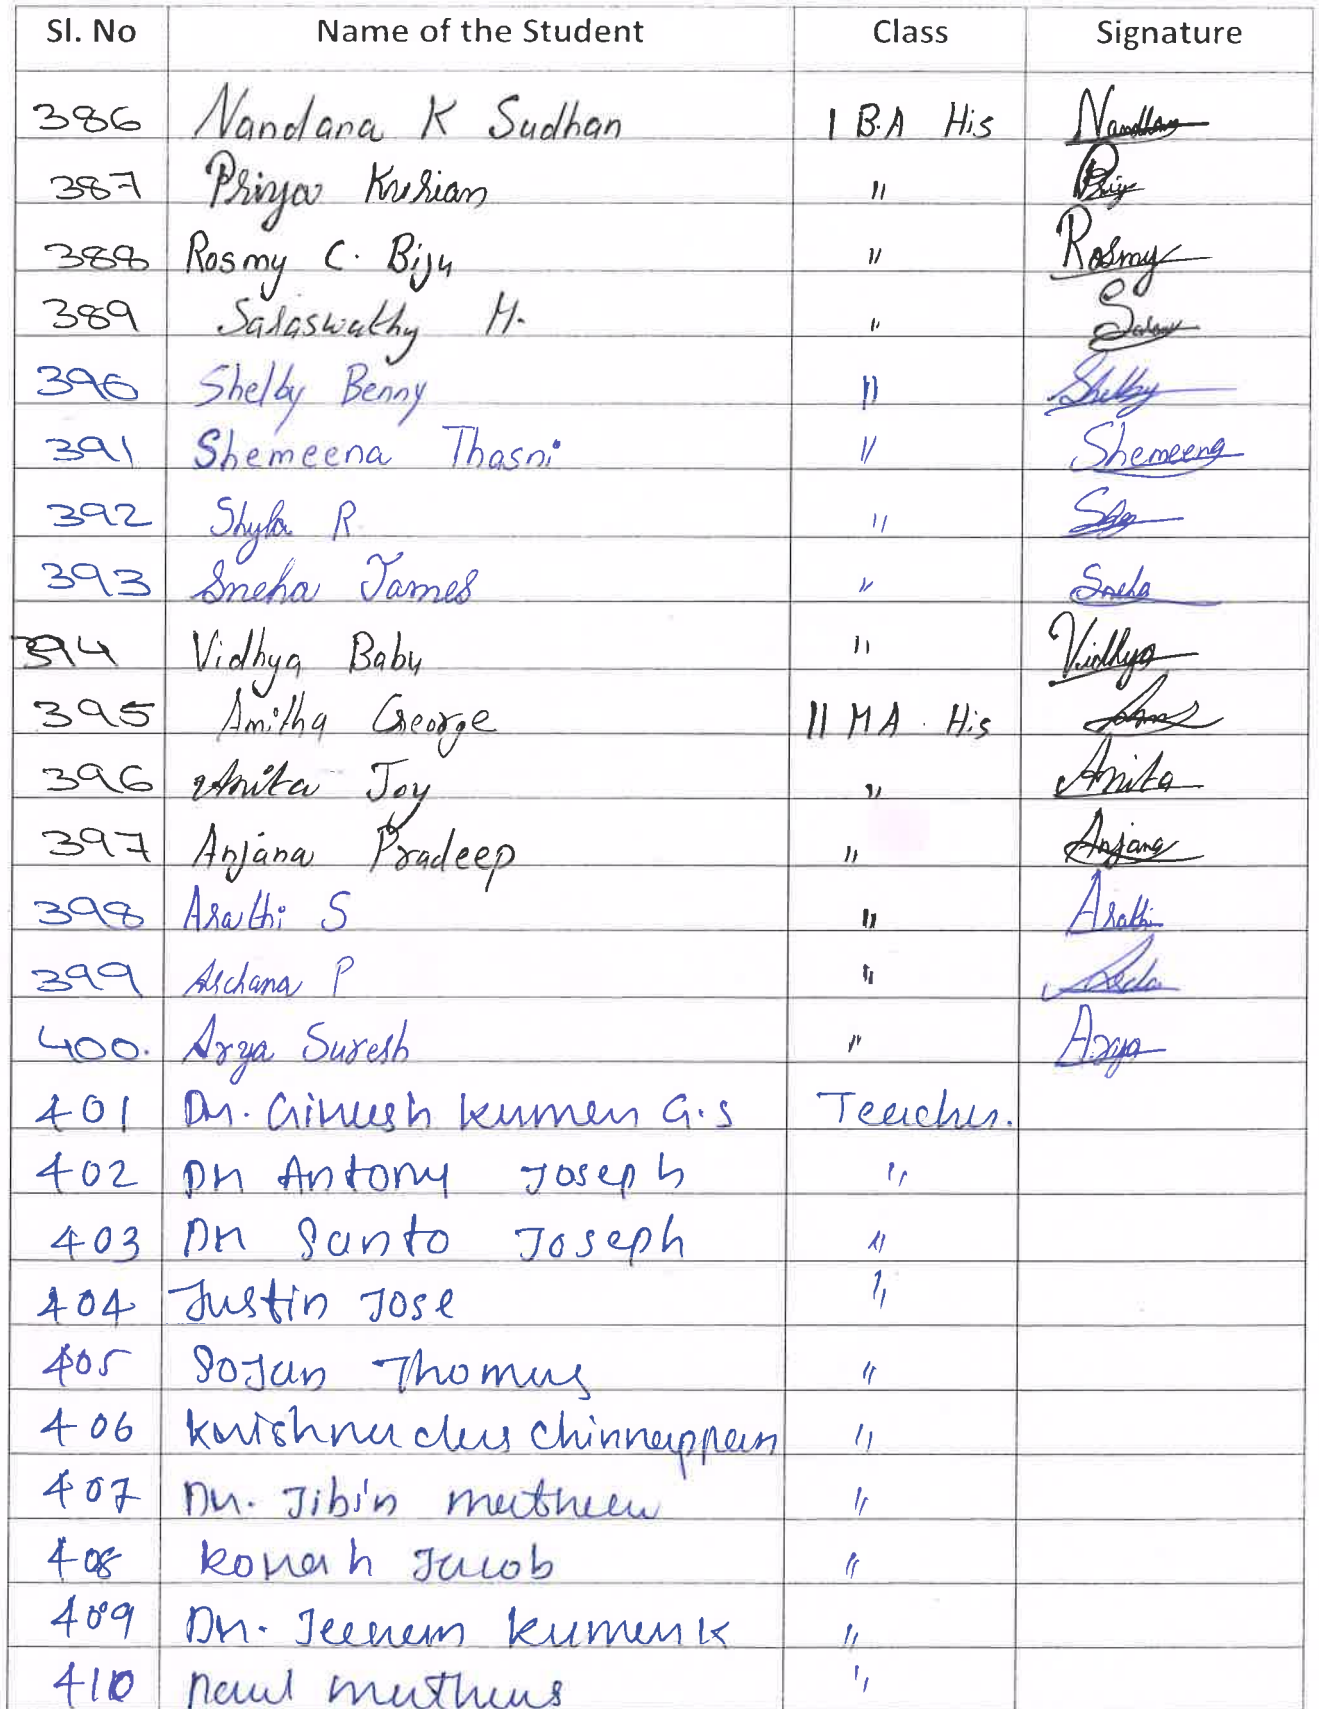 Sl. No Name of the Student Class Signature
386 Nandana K Sudhan I B.A His Nandhana
387 Priya Kurian " Priy
388 Rosmy C. Biju " Rosmy
389 Saraswathy M. "
390 Shelby Benny " Shelby
391 Shemeena Thasni " Shemeena
392 Shyla R "
393 Sneha James " Sneha
394 Vidhya Baby " Vidhya
395 Amitha George II MA . His
396 Anita Joy " Anita
397 Anjana Pradeep " Anjana
398 Arathi S " Arathi
399 Archana P "
400. Arya Suresh " Arya
401 Dr. Gireesh Kumar G.S Teacher.
402 Dr Antony Joseph "
403 Dr Santo Joseph "
404 Justin Jose "
405 Sojan Thomas "
406 Krishnadas Chinnappan "
407 Dr. Jibin Mathew "
408 Jacob "
409 Dr. Kumar K "
410 Paul Mathews "